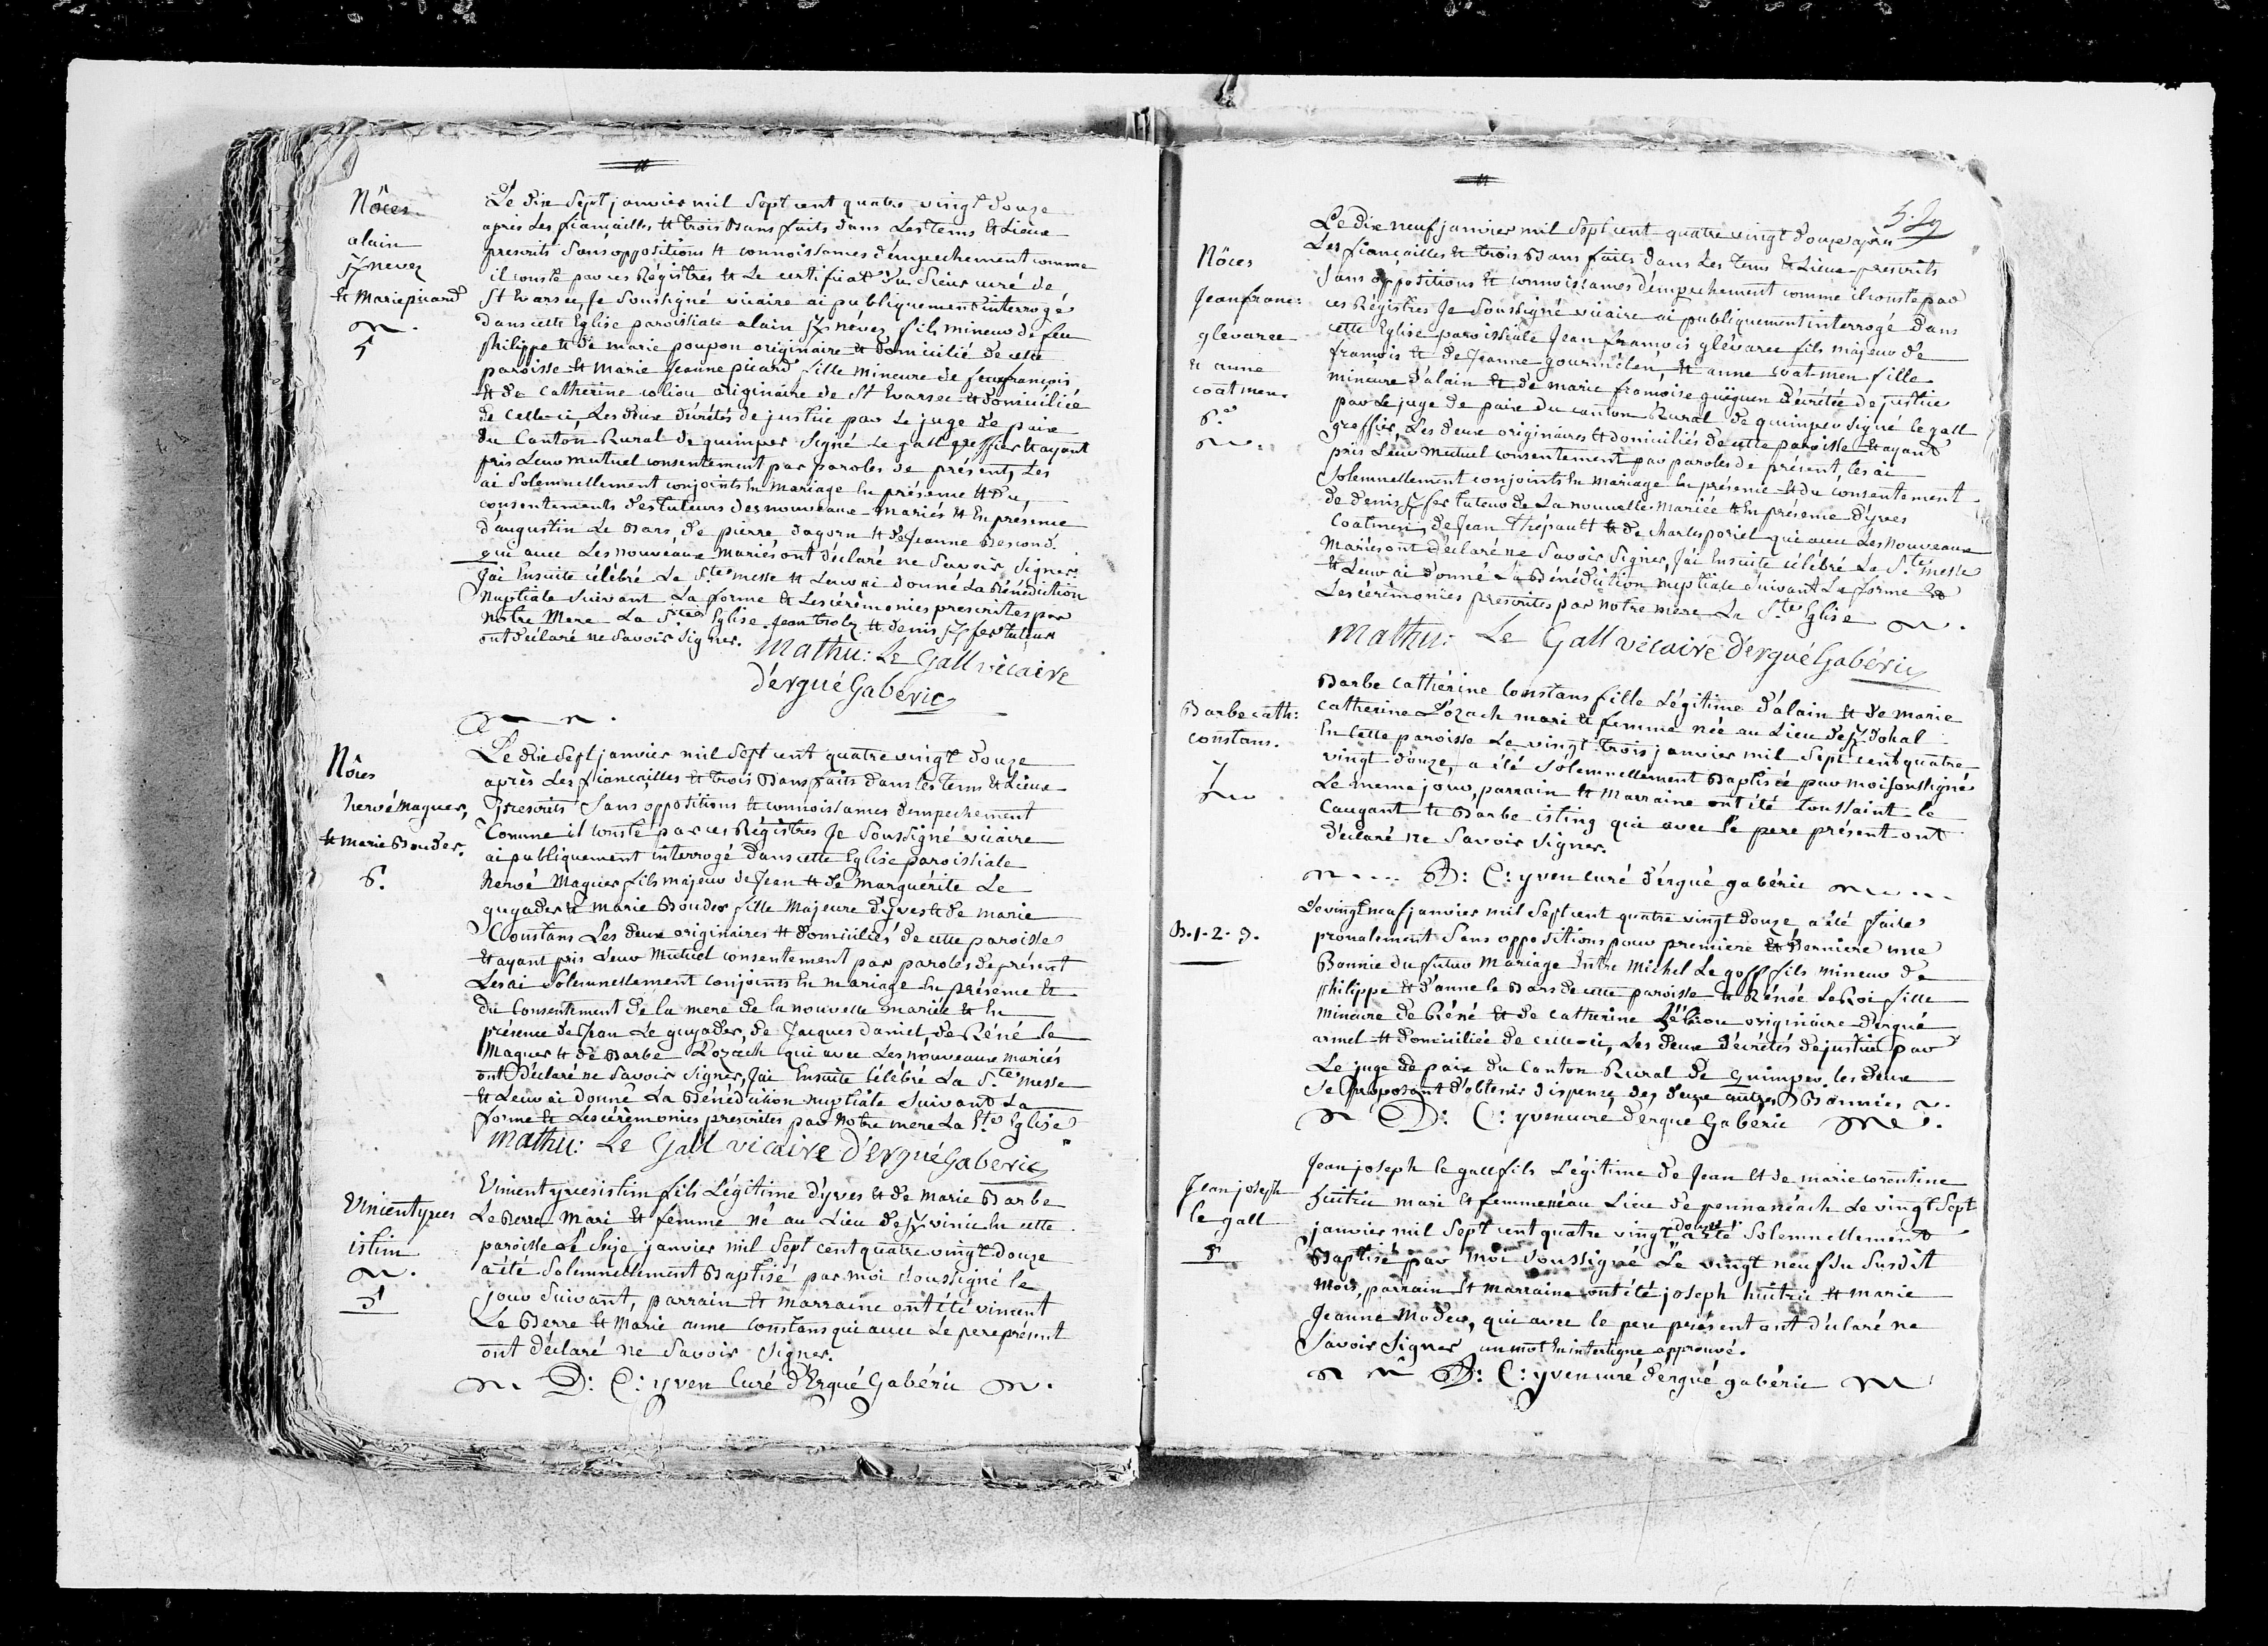 Nôces
alain
K/nevez
et marie picard
5
Le dix Sept janvier mil Sept cent quatre vingt douze
après Les fiançailles et trois Bans faits dans Les tems et Lieux
prescrits Sans oppositions et connoissances d'empechement comme
il conste par ces Régistres et Le certificat du Sieur curé de
St Evarzec, Je Soussigné vicaire ai publiquement interrogé
dans cette Eglise paroissiale alain K/névez fils mineur de feu
philippe et de marie poupon originaire et domicilié de cette
paroisse et Marie Jeanne picard fille mineure de feu françois
et de Catherine coliou originaire de St Evarzec et domiciliée
de Celle-ci, Les deux décrétés de justice par Le juge de paix
du Canton Rural de quimper Signé Le gall greffier et ayant
pris Leur mutuel consentement par paroles de présent, Les
ai Solemnellement conjoints En Mariage En présence et du
consentements des tuteurs des nouveaux mariés et En présence
d'augustin Le Bars, de pierre dagorn et de Jeanne Bescond
qui avec Les nouveaux mariés ont déclaré ne Savoir Signer.
J'ai Ensuite célébré La S.te messe et Leur ai donné La Bénédiction
Nuptiale Suivant La forme et Les cérémonies prescrites par
Notre Mere La S.te Eglise. Jean troly et denis K/fer tuteurs
ont déclaré ne Savoir Signer. Mathu: Le Gall vicaire
d'ergué Gabéric
Nôces
hervé Maguer,
et marie Bouder.
6.
Le dix Sept janvier mil Sept cent quatre vingt douze
après Les fiançailles et trois Bans faits dans les tems et Lieux
prescrits Sans oppositions et connoissances d'empechement
Comme il conste par ces Régistres Je Soussigné vicaire
ai publiquement interrogé dans cette Eglise paroissiale
hervé Maguer fils majeur de Jean et de Marguérite Le
guyader et Marie Bouder fille Majeure d'yves et de marie
Constans Les deux originaires et domiciliés de cette paroisse
et ayant pris Leur Mutuel consentement par paroles de présent
Les ai Solemnellement conjoints En mariage En présence et
du Consentement de la mere de la nouvelle mariée et En
présence de Jean Le guyader, de Jacques daniel, de Réné le
Maguer et de Barbe Lozach qui avec Les nouveaux mariés
ont déclaré ne Savoir Signer, J'ai Ensuite Célébré La S.te messe
et Leur ai donné La Bénédiction nuptiale Suivant La
forme et Les cérémonies prescrites par Notre mere La S.te Eglise
Mathu: Le Gall vicaire d'ergué Gaberic
Vincent yves
istin
5
Vincent yves istin fils Légitime d'yves et de Marie Barbe
Le Berre Mari et femme né au Lieu de K/vinic En cette
paroisse Le Seize janvier mil Sept cent quatre vingt douze
a été Solemnellement Baptisé par moi Soussigné le
jour Suivant, parrain et marraine ont été vincent
Le Berre et Marie anne Constans qui avec Le pere présent
ont déclaré ne Savoir Signer.
D: C: yven Curé d'Ergué Gabéric
Nôces
Jean franc:
glevarec
et anne
coatmen.
Le dix neuf janvier mil Sept cent quatre vingt douze après
Les fiançailles et trois Bans faits dans Les Tems et Lieux prescrits
Sans oppositions et connoissances d'empechement comme il conste par
ces Régistres Je Soussigné vicaire ai publiquement interrogé dans
cette Eglise paroissiale Jean françois glévarec fils majeur de
françois et de Jeanne gourmelen, et anne coatmen fille
mineure d'alain et de marie françoise guéguen décrétée de justice
par Le juge de paix du canton Rural de quimper signé le gall
greffier, Les deux originaires et domiciliés de cette paroisse et ayant
pris Leur Mutuel consentement par paroles de présent, les ai
Solemnellement conjoints En mariage En présence et du consentement
de denis K/fer tuteur de La nouvelle Mariée et En présence d'yves
Coatmen, de Jean thépault et de charles poriel qui avec Les nouveaux
Mariés ont déclaré ne Savoir Signer, J'ai Ensuite célébré La S.te messe
et Leur ai donné La Bénédiction nuptiale Suivant La forme et
Les cérémonies prescrites par notre mere La S.te Eglise
Mathu: Le Gall vicaire d'ergué Gabéric
Barbe cath:
constans.
7
Barbe Cathérine Constans fille Légitime d'alain et de Marie
Catherine Lozach mari et femme née au Lieu de K/dohal
En Cette paroisse Le vingt trois janvier mil Sept cent quatre
vingt douze, a été Solemnellement Baptisée par moi Soussigné
Le meme jour, parrain et Marraine ont été toussaint le
Caugant et Barbe isting qui avec Le pere présent ont
déclaré ne Savoir Signer.
D: C: yven curé d'ergué gabéric
B.1.2.3.
Le vingt neuf janvier mil Sept cent quatre vingt douze, a été faite
pronalement Sans oppositions pour premiere et Derniere une
Bannie du futur Mariage Entre Michel Le goff fils mineur de
philippe et d'anne le Bars de cette paroisse et Rénée Le Roi fille
mineure de Réné et de Catherine originaire d'ergué
armel et domiciliée de celle-ci, Les deux décrétés de justice par
Le juge de paix du Canton Rural de quimper, les deux
Se proposant d'obtenir dispense des deux autres Bannies
D: C: yven curé d'ergué Gabéric
Jean joseph
le gall
8
Jean joseph le gall fils Légitime de Jean et de marie corentine
huitric mari et femme né au Lieu de pennanéach Le vingt Sept
janvier mil Sept cent quatre vingt douze a été Solemnellement
Baptisé par moi Soussigné Le vingt neuf du Susdit
Mois, parrain et marraine ont été joseph huitric et marie
Jeanne Mader, qui avec le pere présent ont déclaré ne
Savoir Signer, un mot En interligne approuvé.
D: C: yven curé d'ergué gabéric